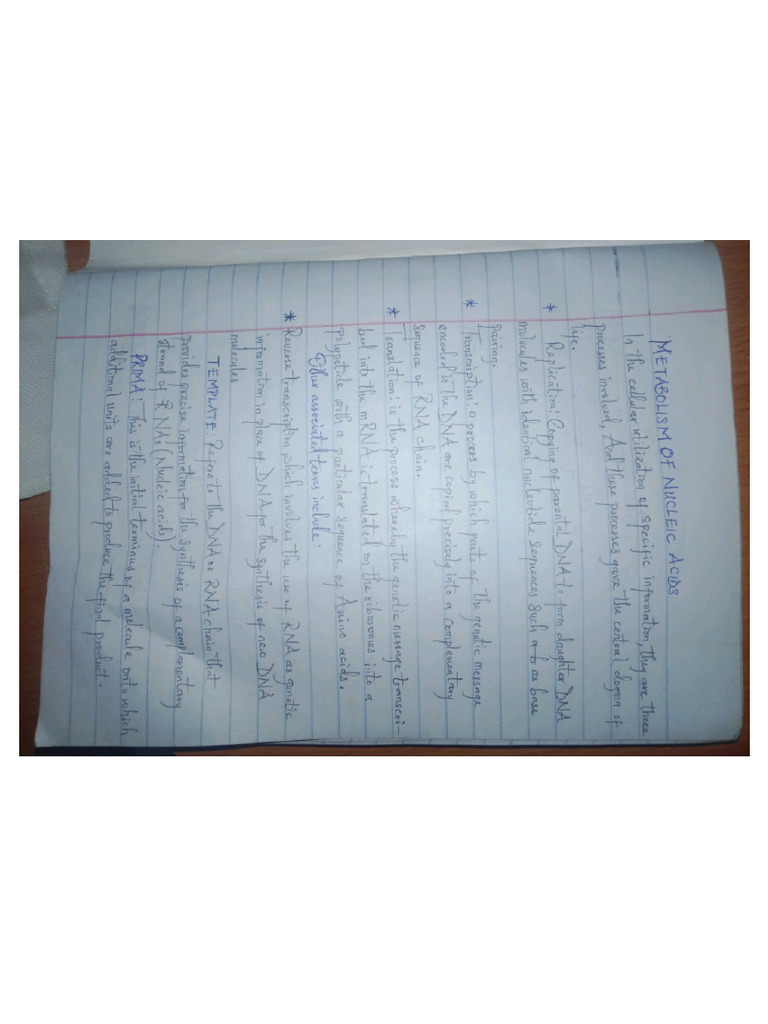 METABOLISM OF NUCLEIC ACIDS
In the cellular utilization of specific information, they are three
processes involved, And these processes gave the central dogma of
life.
* Replication; Copying of parental DNA to form daughter DNA
molecules with identical nucleotide sequences such as base
pairing.
* Transcription: a process by which parts of the genetic message
encoded in the DNA are copied precisely into a complementary
sequence of RNA chain.
* Translation: is the process whereby the genetic message transcri-
bed into the mRNA is translated on the ribosomes into a
polypeptide with a particular sequence of Amino acids.
Other associated terms include:
* Reverse-transcription which involves the use of RNA as genetic
information in place of DNA for the synthesis of new DNA
molecules
TEMPLATE: Refers to the DNA or RNA chain that
provides precise information for the synthesis of a complementary
strand of RNA: (Nucleic acids).
PRMA: This is the initial terminus of a molecule onto which
additional units are added to produce the final product.